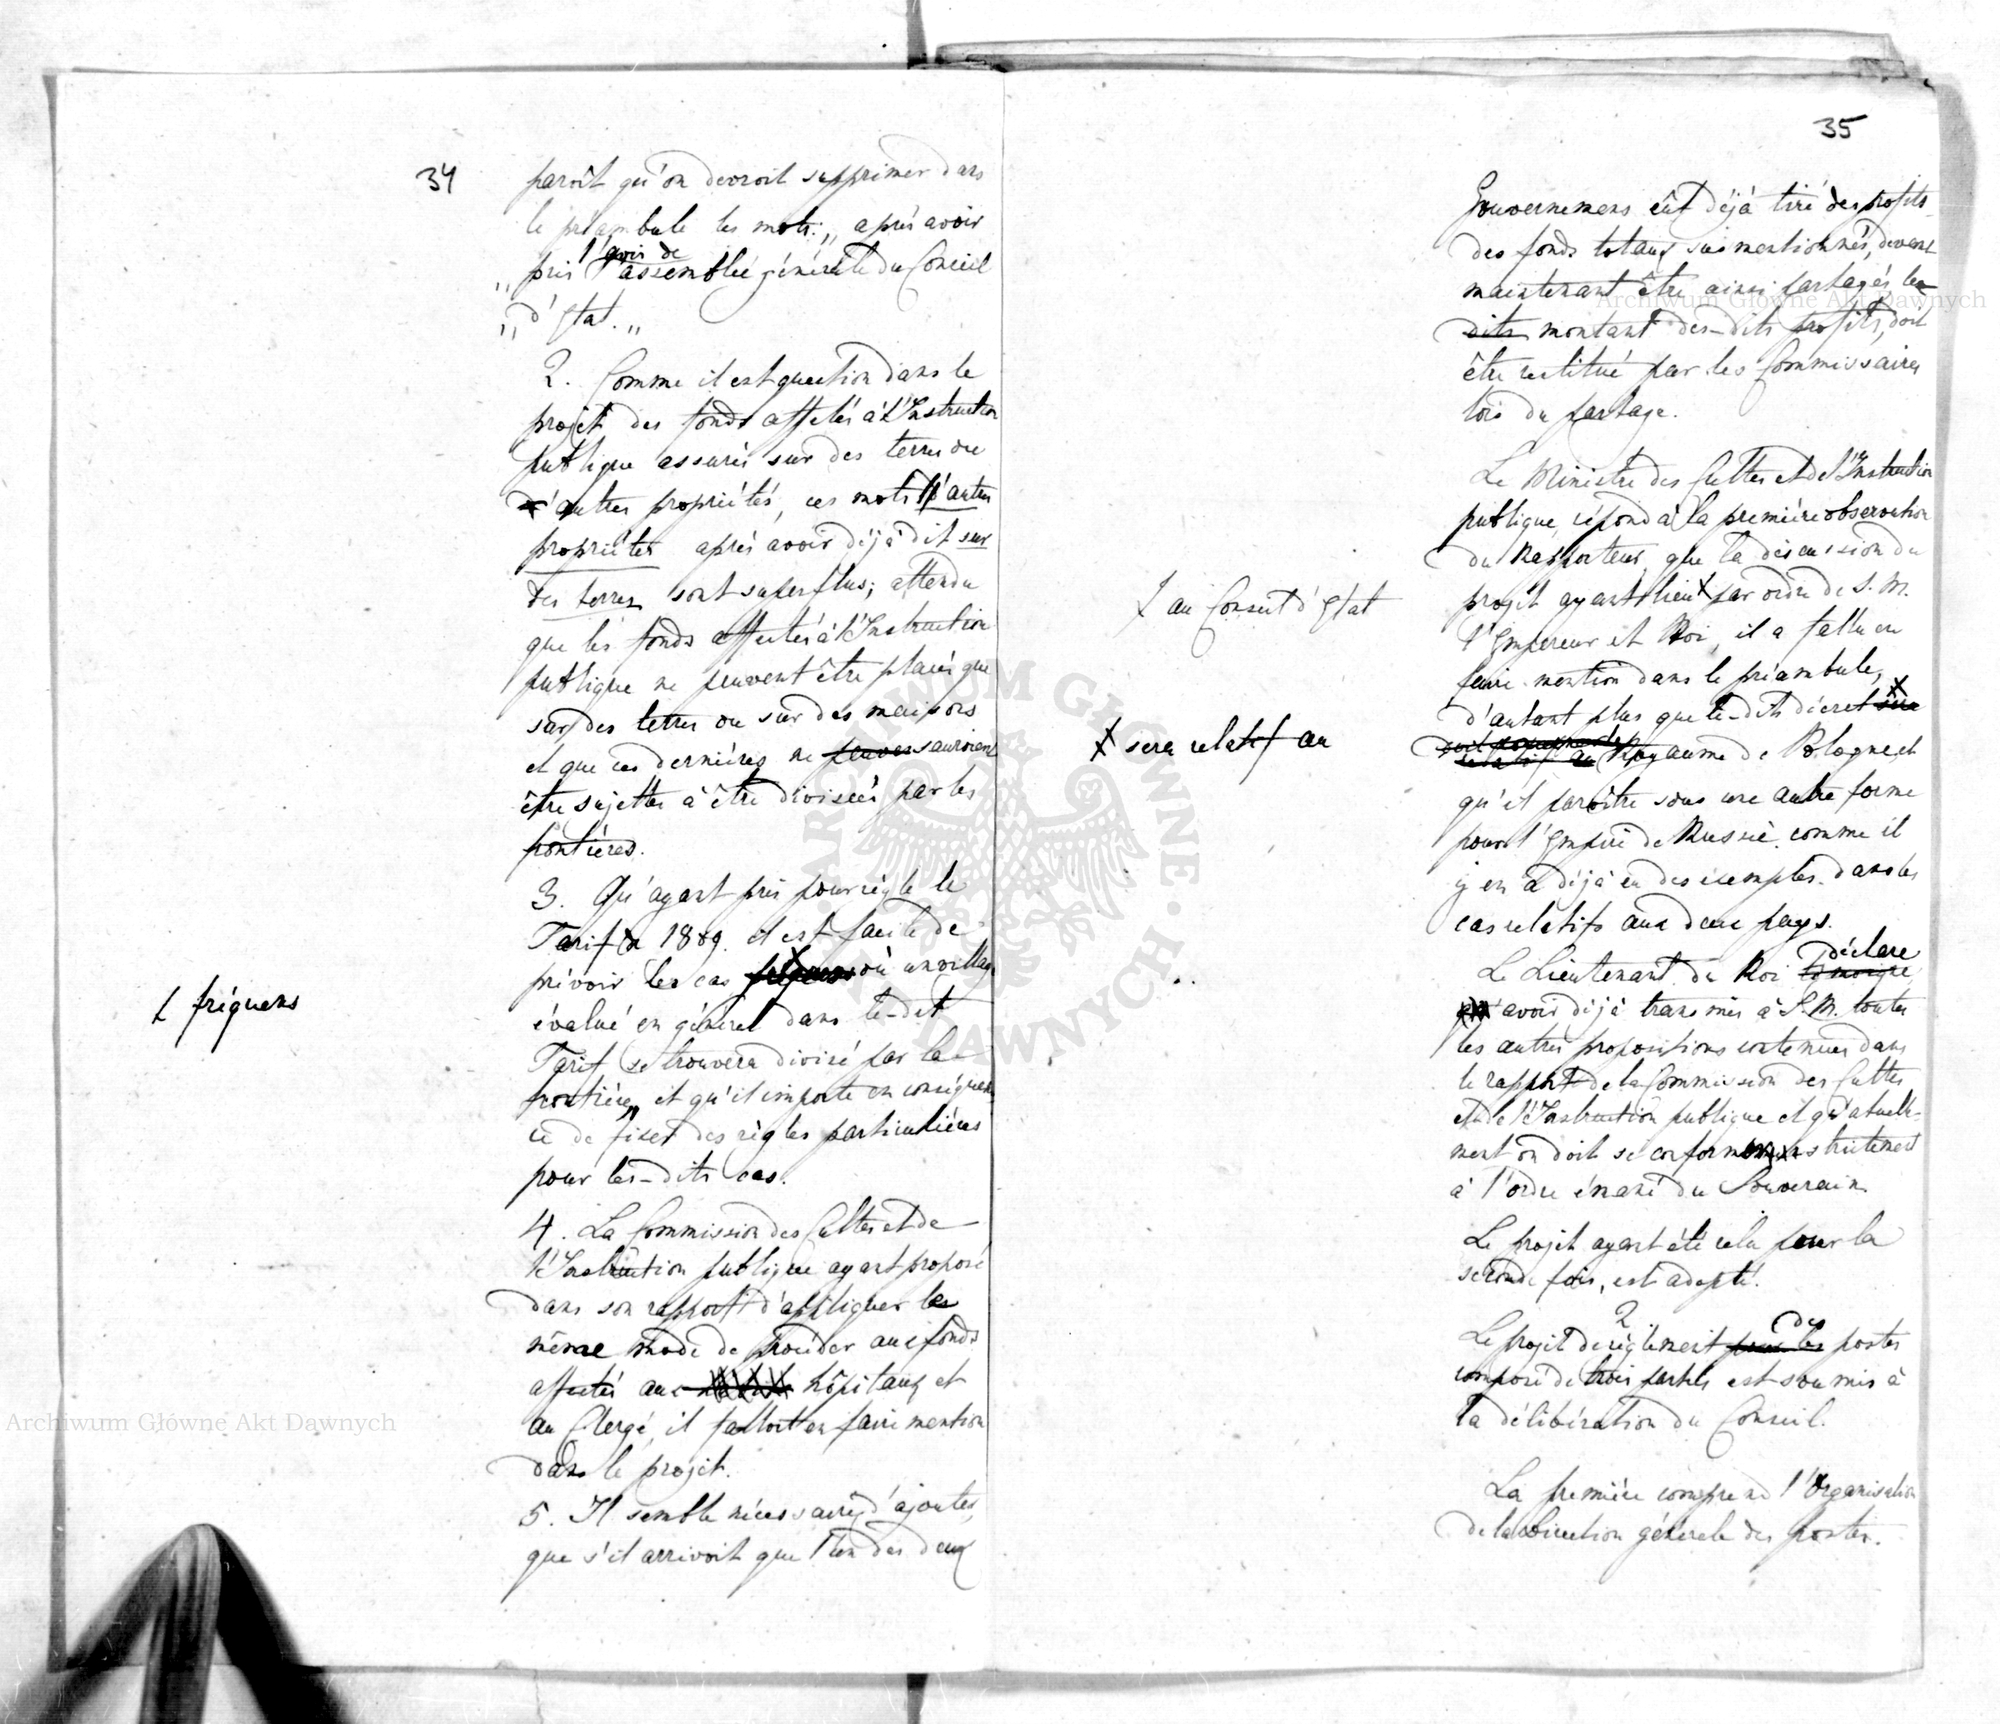 34
paroît qu'on devroit supprimer dans
le préambule les mots: „ après avoir
l'avis de
„ pris l'assemblée générale du Conseil
„ d'Etat. „
2. Comme il est question dans le
projet des fonds affectés à l'Instruction
publique assurés sur des terres ou
d'autres propriétés, ces mots d'autres
propriétés après avoir déjà dit sur
des terres sont superflus; attendu
que les fonds affectés à l'Instruction
publique ne peuvent être placés que
sur des terres ou sur des maisons
et que ces dernières ne sauroient
être sujettes à être divisées par les
frontières.
3. Qu'ayant pris pour règle le
Tarif de 1789. il est facile de
prévoir les cas où un village
⁒ fréquens
évalué en général dans le-dit
Tarif se trouvera divisé par la
frontière, et qu'il importe en conséquen
ce de fixer des règles particulières
pour les-dits cas.
4. La Commission des Cultes et de
l'Instruction publique ayant proposé
dans son rapport d'appliquer le
même mode de procéder aux fonds
affectés aux hôpitaux et
au Clergé, il falloit en faire mention
dans le projet.
5. Il semble nécessaire d'ajouter,
que s'il arrivoit que l'un des deux
35
Gouvernemens eût déjà tiré des profits
des fonds totaux susmentionnés, devant
maintenant être ainsi partagés le
montant des-dits profits, doit
être restitué par les Commissaires
lors du partage.
Le Ministre des Cultes et de l'Instruction
publique, répond à la première observation
du Rapporteur, que la discussion du
projet ayant lieu par ordre de S. M.
⁒ au Conseil d'Etat
l'Empereur et Roi, il a fallu en
faire mention dans le préambule,
d'autant plus que le-dit décret
⁒ sera relatif au
Royaume de Pologne et
qu'il paroître sous une autre forme
pour l'Empire de Russie, comme il
y en a déjà eu des exemples dans les
cas relatifs aux deux pays.
déclare
Le Lieutenant du Roi témoigne
avoir déjà transmis à S. M. toutes
les autres propositions contenues dans
le rapport de la Commission des Cultes
et de l'Instruction publique et qu'actuelle-
ment on doit se conformer strictement
à l'ordre émané du Souverain
Le projet ayant été relu pour la
seconde fois, est adopté.
2
des
Le projet de règlement pour les postes
composé de trois parties est soumis à
la délibération du Conseil.
La première comprend l'Organisation
de la direction générale des postes.
Archiwum Główne Akt Dawnych
Archiwum Główne Akt Dawnych
ARCHIWUM GŁÓWNE AKT DAWNYCH